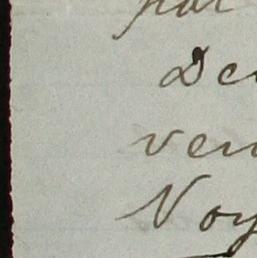 par
De
ven
Noy